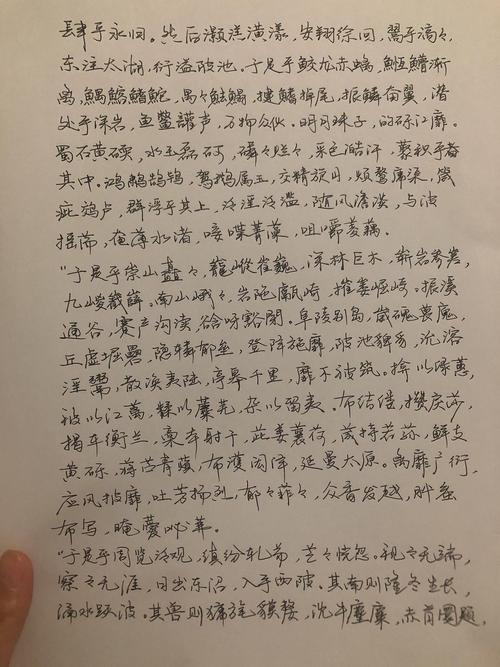 肆乎永归。然后灏溔潢漾，安翔徐回，翯乎滈々，
东注太湖，衍溢陂池。于是乎鲛龙赤螭，䱭䲛渐
离，鰅鳙鳍鮀，禺々魼鳎，揵鳍掉尾，振鳞奋翼，潜
处乎深岩，鱼鳖讙声，万物众伙。明月珠子，的砾江靡。
蜀石黄碝，水玉磊砢，磷々烂々，采色澔汗，藂积乎
其中。鸿鹔鹄鸨，鴐鹅属玉，交精旋目，烦鹜庸渠，箴
疵鵁卢，群浮乎其上，泛淫泛滥，随风澹淡，与波
摇荡，奄薄水渚，唼喋菁藻，咀嚼菱藕。
“于是乎崇山矗々，巃嵷崔巍，深林巨木，崭岩参差，
九嵕嶻嶭。南山峨々，岩陁甗崎，摧崣崛崎。振溪
通谷，蹇产沟渎，谽呀豁閜。阜陵别岛，崴磈嵔廆，
丘虚堀礨，隐辚郁㠥，登降施靡，陂池貏豸，沇溶
淫鬻，散涣夷陆，亭皋千里，靡不被筑。揜以绿蕙，
被以江蓠，糅以蘪芜，杂以留夷。布结缕，攒戾莎，
揭车衡兰，槀本射干，茈姜蘘荷，葴持若荪，鲜支
黄砾，蒋苎青薠，布濩闳泽，延曼太原。离靡广衍，
应风披靡，吐芳扬烈，郁々菲々，众香发越，肸蚃
布写，晻薆咇茀。
“于是乎周览泛观，缜纷轧芴，芒々恍忽。视之无端，
察之无涯，日出东沼，入乎西陂。其南则隆冬生长，
涌水跃波。其兽则㺎旄貘嫠，沈牛麈麋，赤首圜题，